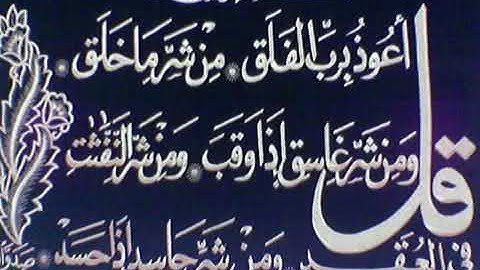 قل أعوذ برب الفلق • من شر ما خلق •
ومن شر غاسق إذا وقب • ومن شر النفثت
في العقد ومن شر حاسد إذا حسد •